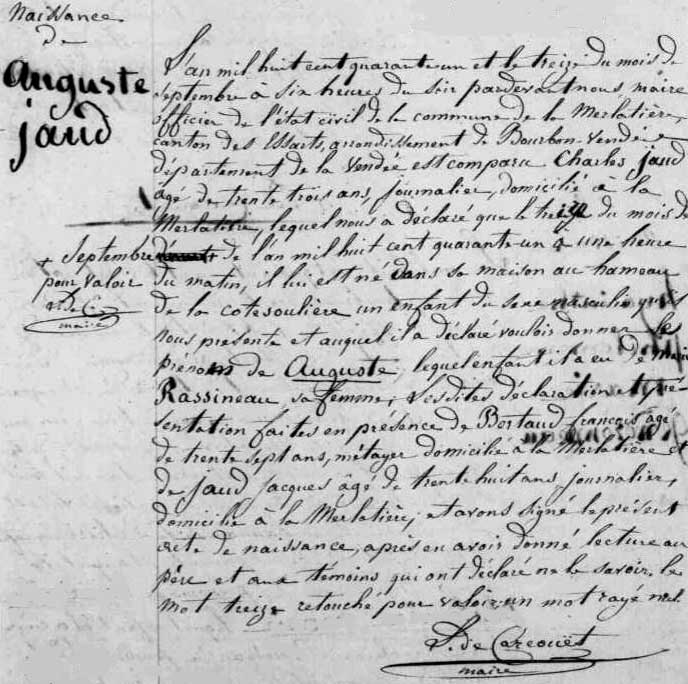 Naissance
de
Auguste
jaud
L'an mil huit cent quarante un et le treize du mois de
septembre a six heures du soir pardevant nous maire
officier de l'état civil de la commune de la Merlatière,
canton des Essarts, arrondissement de Bourbon-vendée
département de la vendée est comparu Charles jaud
âgé de trente trois ans, journalier, domicilié à la
Merlatière, lequel nous a déclaré que le treize du mois de
+ Septembre
pour valoir
maire
de l'an mil huit cent quarante un a une heure
du matin, il lui est né dans sa maison au hameau
de la cotesoulière un enfant du sexe masculin qu'il
nous présente et auquel il a déclaré vouloir donner le
prénom de Auguste, lequel enfant il a eu de Marie
Rassineau sa femme, Lesdites déclaration et pré-
sentation faites en présence de Bertaud françois âgé
de trente sept ans, métayer domicilié à la Merlatière et
de jaud jacques âgé de trente huit ans, journalier,
domicilié à la Merlatière, et avons signé le présent
acte de naissance, après en avoir donné lecture au
père et aux témoins qui ont déclaré ne le savoir. le
mot treize retouché pour valoir, un mot rayé nul.
de Carcouët
maire